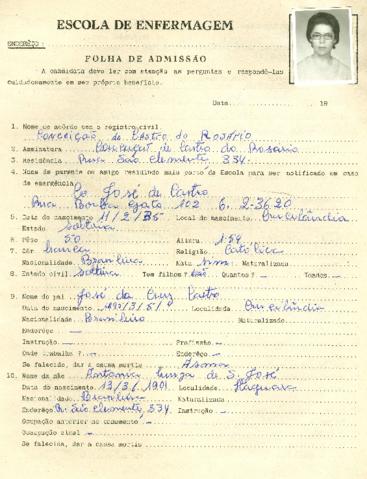 ESCOLA DE ENFERMAGEM
ENDEREÇO:
FOLHA DE ADMISSÃO
A candidata deve ler com atenção as perguntas e respondê-las
cuidadosamente em seu próprio benefício.
Data 19
1. Nome de acôrdo com o registro civil
CONCEIÇÃO DE CASTRO DO ROSÁRIO
2. Assinatura Conceição de Castro do Rosário
3. Residência Rua São Clemente, 334
4. Nome de parente ou amigo residindo mais perto da Escola para ser notificado em caso
de emergência José de Castro
Rua 102 6. 2-3620
5. Data do nascimento 11/2/35 Local do nascimento
Estado solteira
6. Pêso 50 Altura 1.59
7. Côr branca Religião Católica
Nacionalidade Brasileira Nata sim Naturalizada
8. Estado civil Solteira Tem filhos? não Quantos? — Idades —
9. Nome do pai José da Cruz Castro
Data do nascimento Localidade
Nacionalidade Brasileiro Naturalizado
Enderêço —
Instrução — Profissão —
Onde trabalha? — Enderêço —
Se falecido, dar a causa mortis
10. Nome da mãe Antonia de S. José
Data do nascimento 13/3/1901 Localidade
Nacionalidade Brasileira Naturalizada
Enderêço R. São Clemente, 334 Instrução —
Ocupação anterior ao casamento —
Ocupação atual —
Se falecida, dar a causa mortis